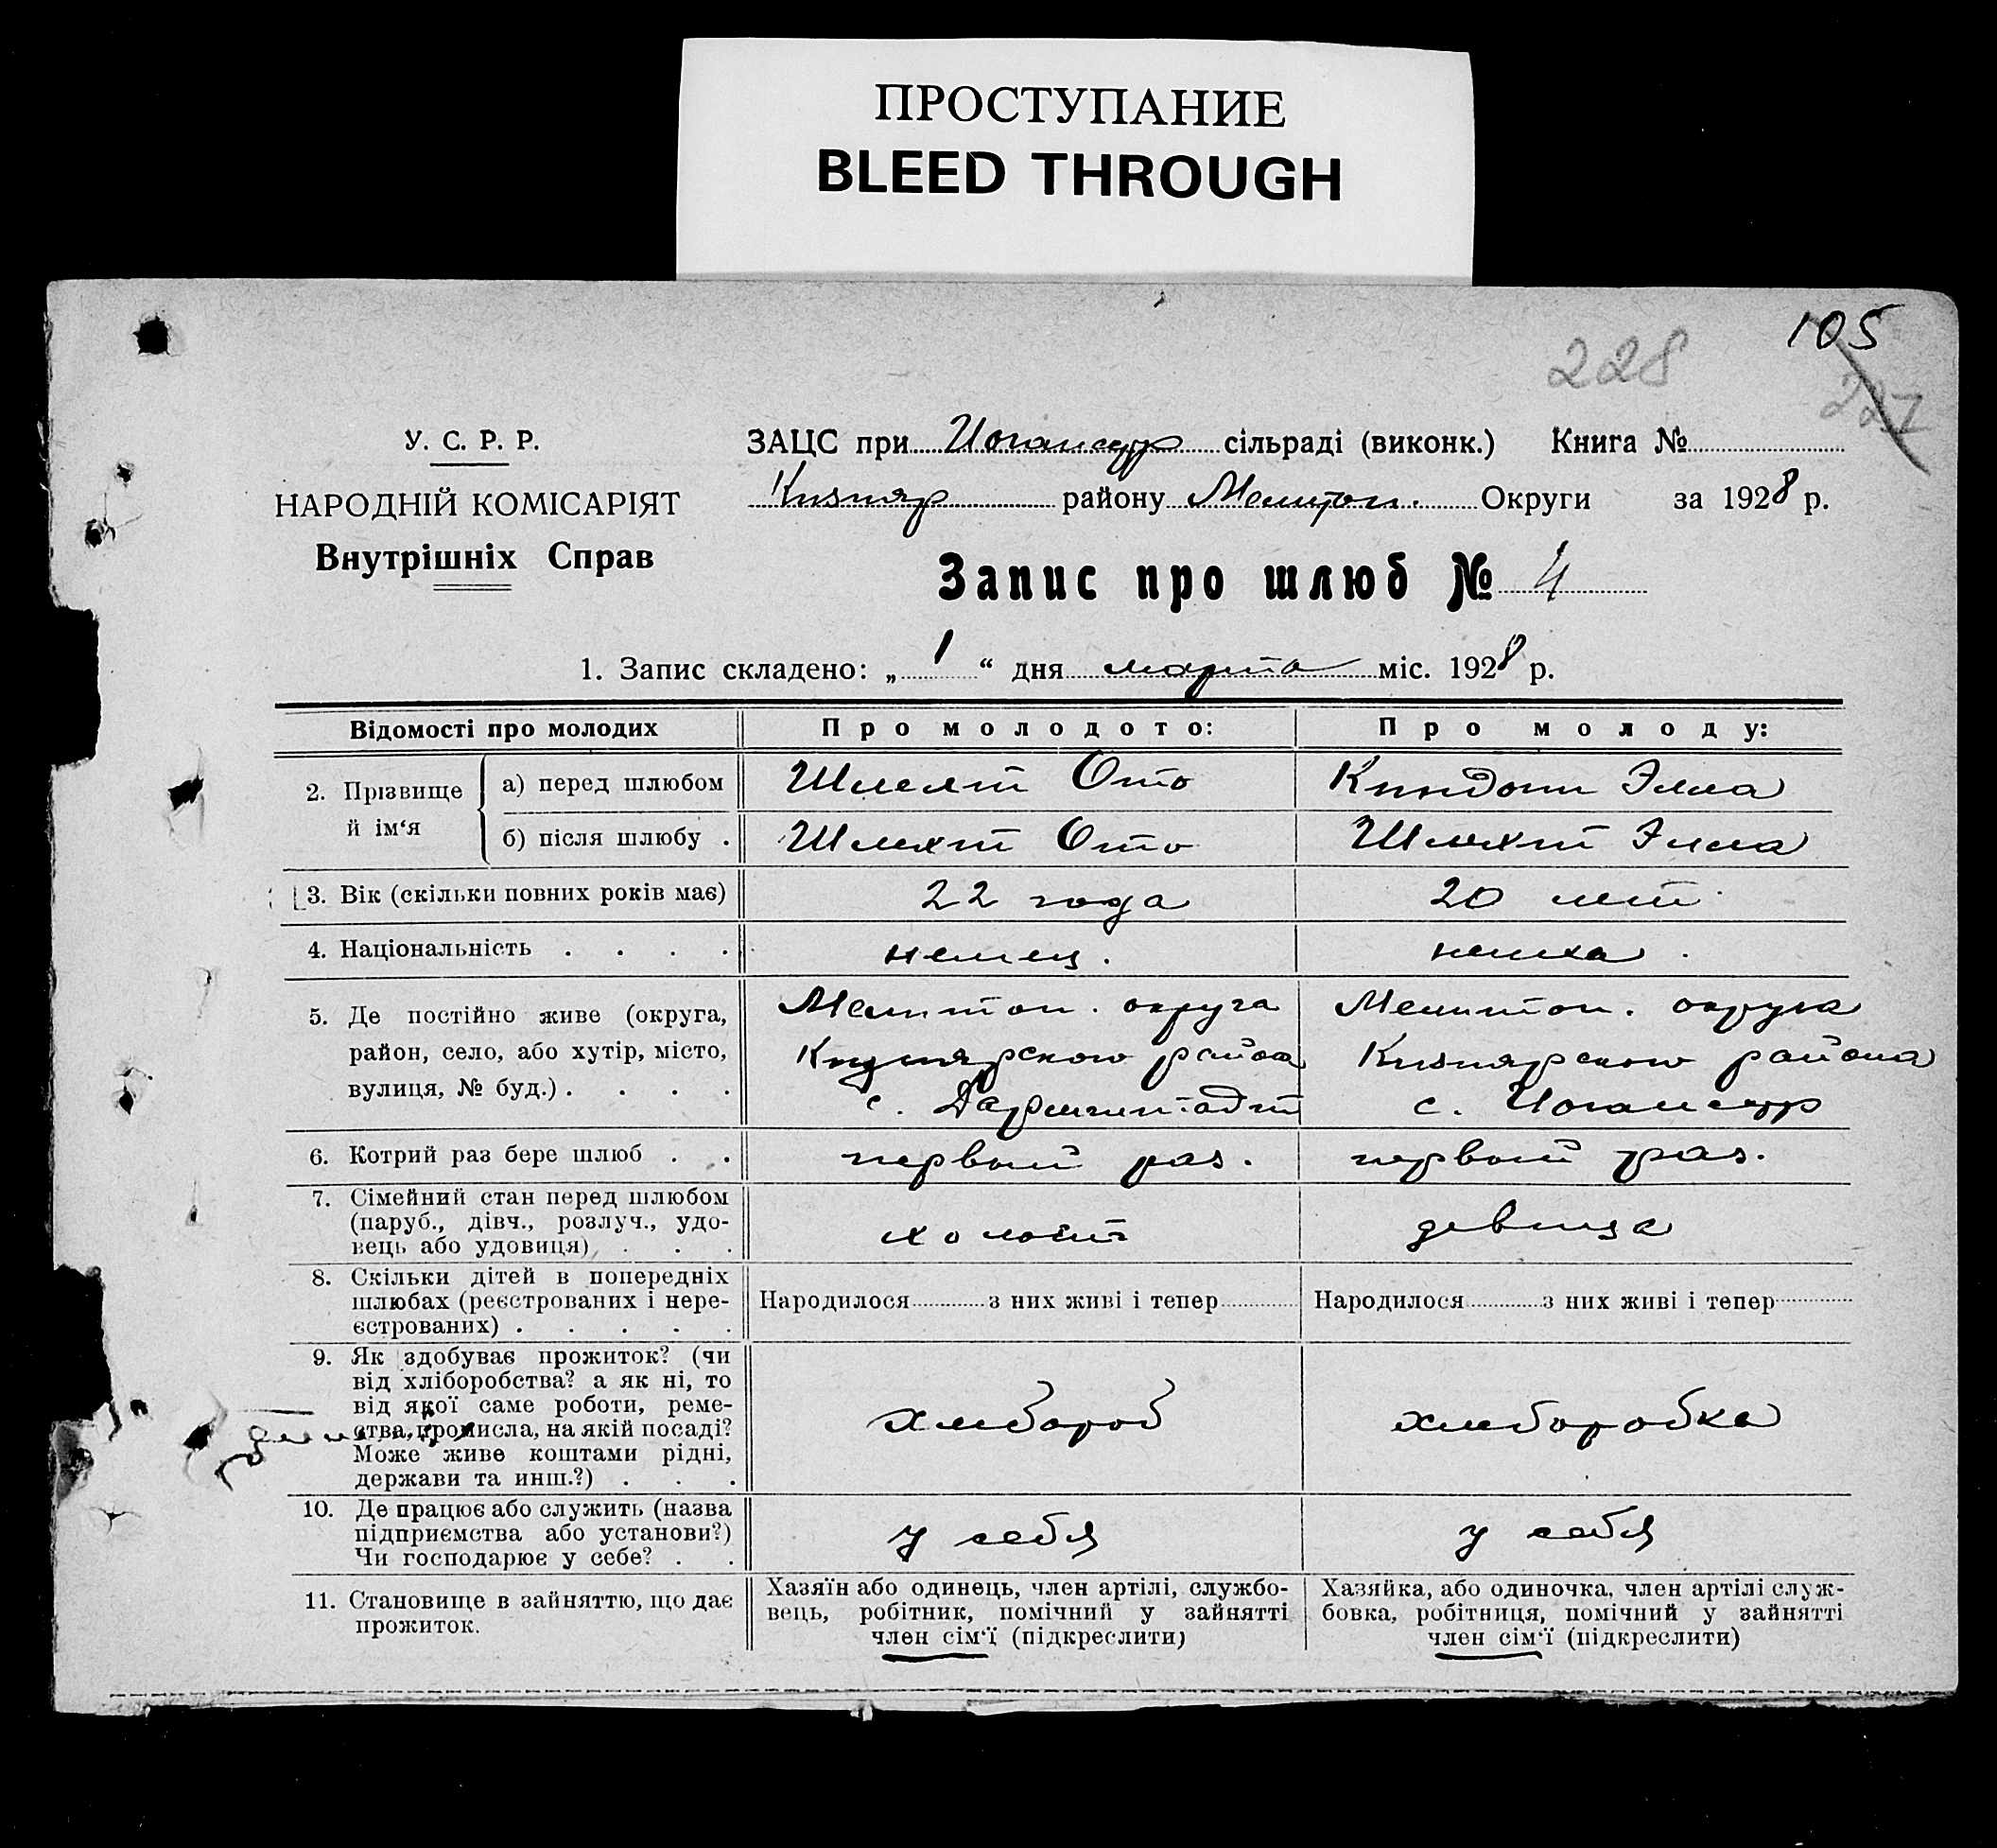 ПРОСТУПАНИЕ
BLEED THROUGH
105
228
227
У. С. Р. Р.
НАРОДНІЙ КОМІСАРІЯТ
Внутрішніх Справ
ЗАЦС при Иогансдрр сільраді (виконк.) Книга №
Кизияр району Мелитоп. Округи за 1928 р.
Запис про шлюб № 4
1. Запис складено: „ 1 “ дня марта міс. 1928 р.
Відомості про молодих Про молодого: Про молоду:
2. Прізвище й ім‘я
а) перед шлюбом Шлехт Отто
б) після шлюбу . Шлехт Отто Шлехт Элла
3. Вік (скільки повних років має) 22 года 20 лет
4. Національність . . . . немец. немка.
5. Де постійно живе (округа, район, село, або хутір, місто, вулиця, № буд.) . . . .
Мелитоп. округа
Кизиярского района
с. Дармштадт
Мелитоп. округа
Кизиярского района
с.
6. Котрий раз бере шлюб . . первый раз. первый раз.
7. Сімейний стан перед шлюбом
(паруб., дівч., розлуч., удо-
вець або удовиця) . . .
холост девица
8. Скільки дітей в попередніх
шлюбах (реєстрованих і нере-
єстрованих) . . . . .
Народилося з них живі і тепер Народилося з них живі і тепер
9. Як здобуває прожиток? (чи
від хліборобства? а як ні, то
від якої саме роботи, реме-
ства, промисла, на якій посаді?
Може живе коштами рідні,
держави та инш.?) . . .
хлебороб хлеборобка
10. Де працює або служить (назва
підприємства або установи?)
Чи господарює у себе? . .
у себя у себя
11. Становище в зайняттю, що дає
прожиток.
Хазяїн або одинець, член артілі, службо-
вець, робітник, помічний у зайнятті
член сім‘ї (підкреслити)
Хазяйка, або одиночка, член артілі служ-
бовка, робітниця, помічний у зайнятті
член сім‘ї (підкреслити)